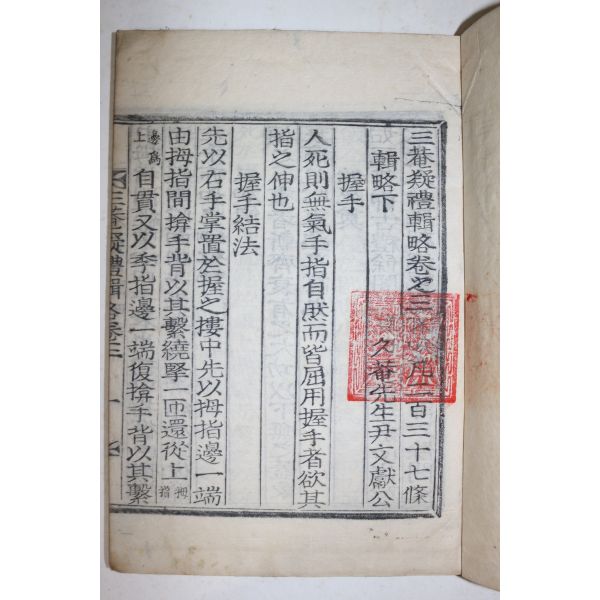 三菴疑禮輯略卷之三 凡一百三十七條
輯略下 久菴先生尹文獻公
握手
人死則無氣手指自然而皆屈用握手者欲其
指之伸也
握手結法
先以右手掌置於握之摟中先以拇指邊一端
由拇指間揜手背以其繫繞掔一匝還從上拇指
邊爲上自貫又以季指邊一端復揜手背以其繫
三菴疑禮輯略卷三 一